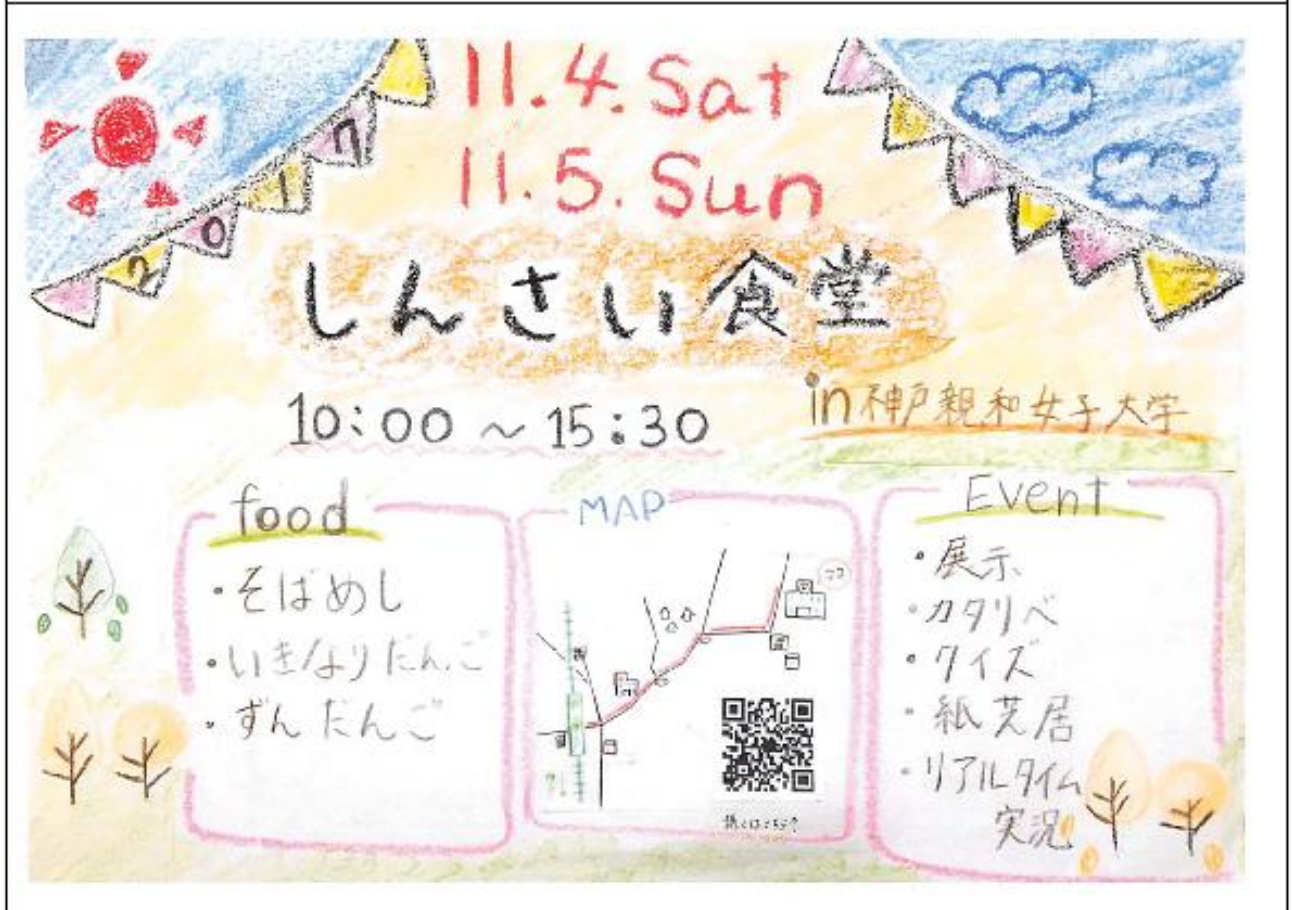 11.4.Sat
11.5.Sun
2017
しんさい食堂
10:00～15:30
in神戸親和女子大学
food
・そばめし
・いきなりだんご
・ずんだんご
MAP
ココ
Event
・展示
・カタリベ
・クイズ
・紙芝居
・リアルタイム
実況